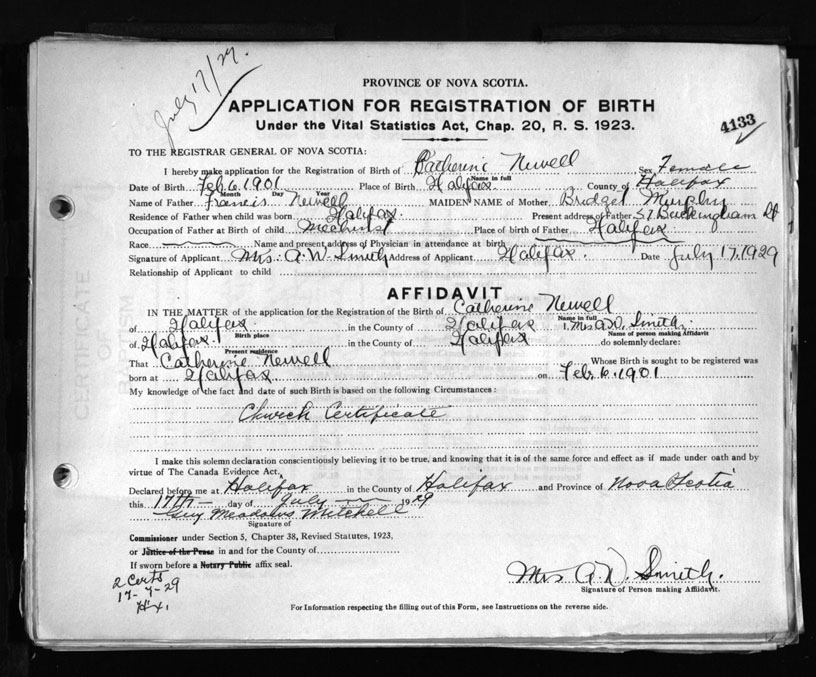 July 17/29.
PROVINCE OF NOVA SCOTIA.
APPLICATION FOR REGISTRATION OF BIRTH
Under the Vital Statistics Act, Chap. 20, R. S. 1923.
4133
TO THE REGISTRAR GENERAL OF NOVA SCOTIA:
I hereby make application for the Registration of Birth of Catherine Newell Sex Female
Name in full
Date of Birth Feb. 6. 1901 Place of Birth Halifax County of Halifax
Month Day Year
Name of Father Francis Newell MAIDEN NAME of Mother Bridget Murphy
Residence of Father when child was born Halifax Present address of Father 57 Buckingham St
Occupation of Father at Birth of child Mechinst Place of birth of Father Halifax
Race Name and present address of Physician in attendance at birth
Signature of Applicant Mrs. A. W. Smith Address of Applicant Halifax. Date July 17, 1929
Relationship of Applicant to child
AFFIDAVIT
IN THE MATTER of the application for the Registration of the Birth of Catherine Newell
Name in full
of Halifax in the County of Halifax I, Mrs A. W. Smith,
Birth place Name of person making Affidavit
of Halifax. in the County of Halifax do solemnly declare:
Present residence
That Catherine Newell Whose Birth is sought to be registered was
born at Halifax on Feb. 6. 1901
My knowledge of the fact and date of such Birth is based on the following Circumstances:
Church Certificate
I make this solemn declaration conscientiously believing it to be true, and knowing that it is of the same force and effect as if made under oath and by
virtue of The Canada Evidence Act.
Declared before me at Halifax in the County of Halifax and Province of Nova Scotia
this 17th day of July 1929
Guy Meadows Mitchell
Signature of
Commissioner under Section 5, Chapter 38, Revised Statutes, 1923,
or Justice of the Peace in and for the County of
If sworn before a Notary Public affix seal.
2 Certs
17-7-29
Hx.
Mrs A. W. Smith.
Signature of Person making Affidavit.
For Information respecting the filling out of this Form, see Instructions on the reverse side.